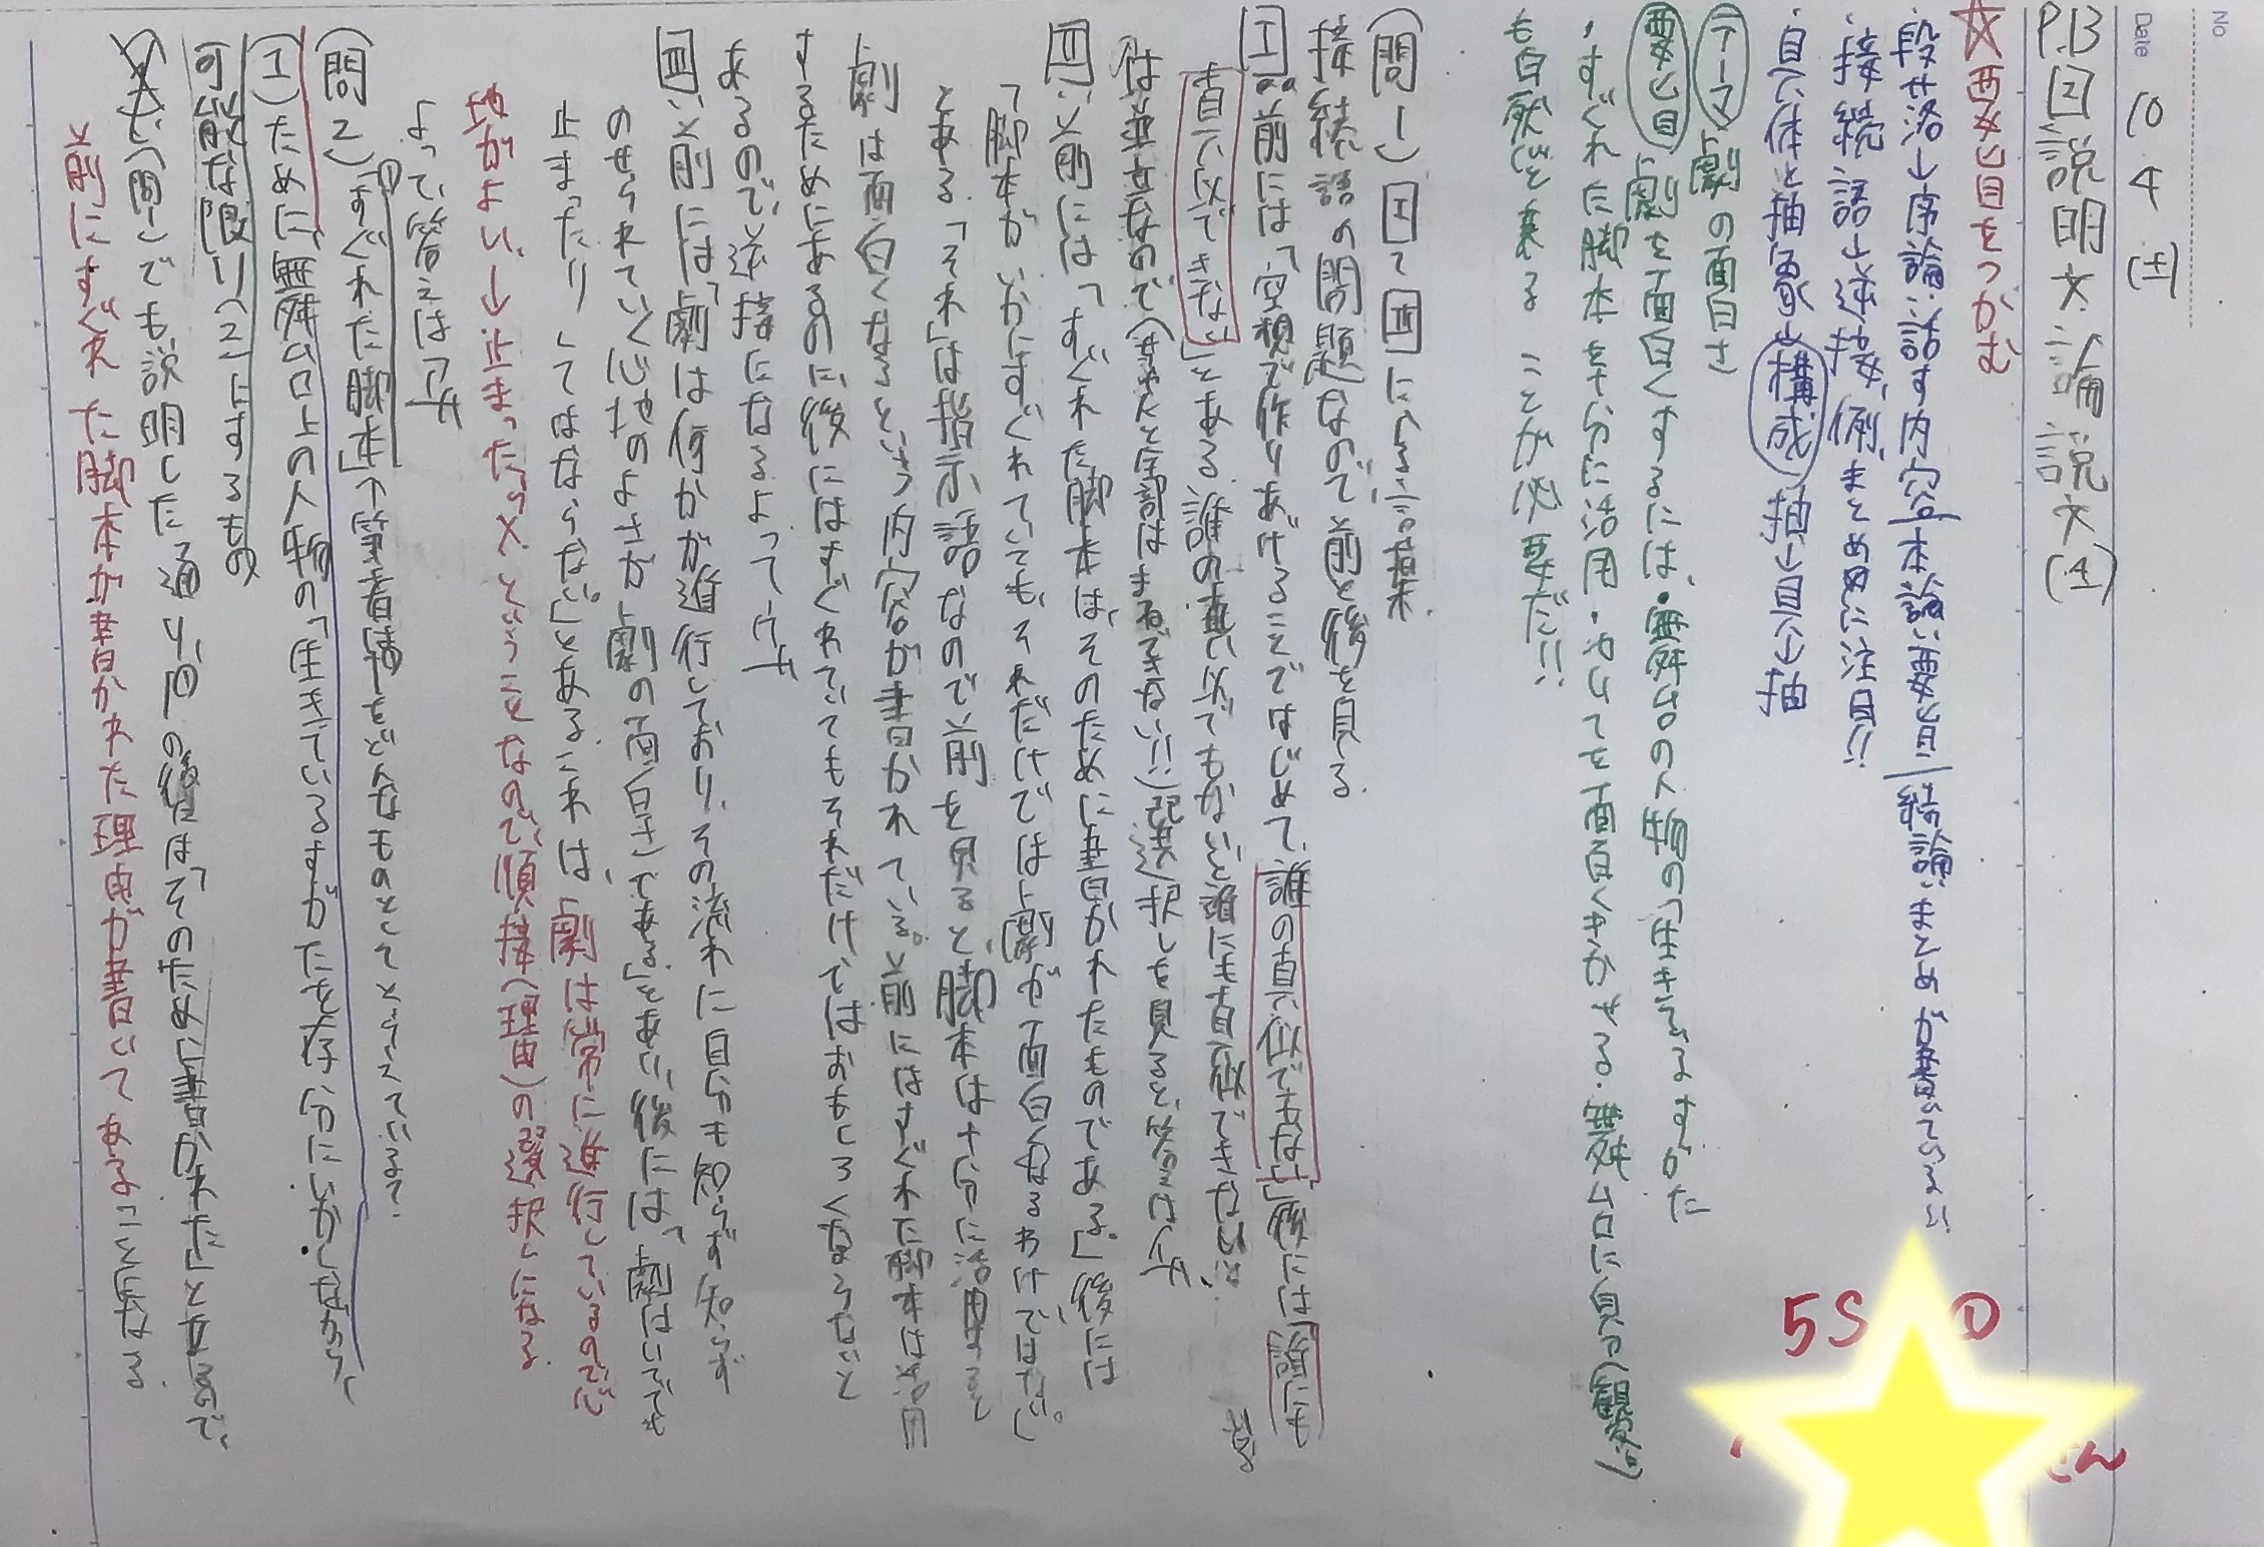 No
Date 10 4 (土)
P.13 回説明文・論説文(4)
☆要旨をつかむ
・段落→序論:話す内容/本論:要旨/結論:まとめが書いている!!
・接続語→逆接、例、まとめに注目!!
・具体と抽象→構成 抽→具→抽
テーマ 劇の面白さ
要旨 劇を面白くするには、・舞台の人物の「生きているすがた
・すぐれた脚本を十分に活用・そしてを面白くきかせる・舞台に見る(観客)
も自然と来ることが必要だ!!
(問一) Ⅰ~Ⅲに入る言葉.
接続語の問題なので前と後を見る.
Ⅰ 前には「空想で作りあげることではじめて、誰の真似でもない」後には「誰にも
真似できない」とある.誰の真似でもないと誰にも真似できない
は並立なので(ちゃんと全部はまねできない!!)選択しを見ると答えはイ
Ⅱ 前には「すぐれた脚本は、そのために書かれたものである。」後には
「脚本がいかにすぐれていても、それだけでは劇が面白くなるわけではない。」
とある.「それ」は指示語なので前を見ると、脚本は十分に活用すると
劇は面白くなるという内容が書かれている。前にはすぐれた脚本は活用
するためにあるのに、後にはすぐれていてもそれだけではおもしろくならないと
あるので、逆接になるよってウ
Ⅲ 前には「劇は何かが進行しており、その流れに自分も知らず知らず
のせられていく心地のよさが劇の面白さである」とあり、後には「劇はいつでも
止まったりしてはならない。」とあるこれは、劇は常に進行しているのでじ
地がよい、→止まったら×ということなので、順接(理由)の選択しになる.
よって答えはア
(問2)①「すぐれた脚本」↑筆者はどんなものとしてとらえているか.
(1)ために、舞台上の人物の「生きているすがたを存分にいかしながら、
可能な限り(2)にするもの
(問一)でも説明した通り、①の後には「そのために書かれた」とあるので、
前にすぐれた脚本が書かれた理由が書いてあることになる.
5S ①
さん